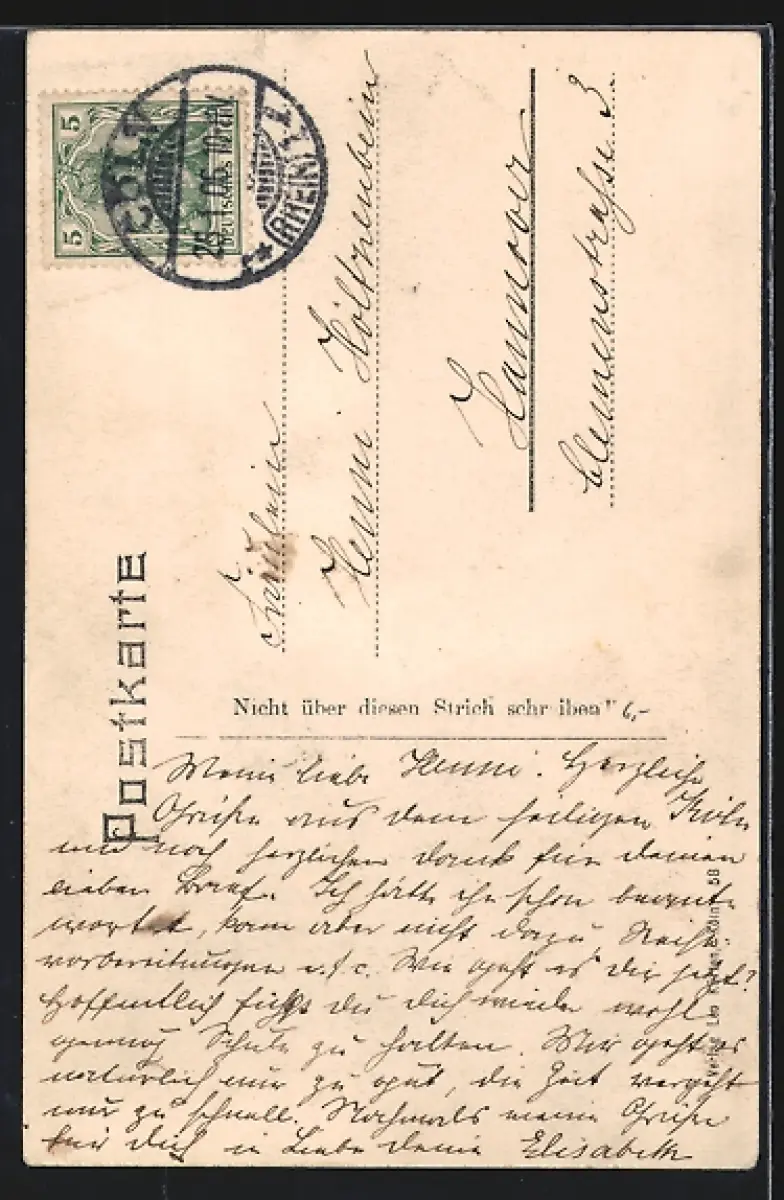 5 5
DEUTSCHES REICH
CÖLN
25.1.06. 10-11V.
* (RHEIN) 1
Postkarte
Fräulein
Henni Höltzenbein
Hannover
Clemensstrasse 3.
Nicht über diesen Strich schreiben 6,-
Meine liebe Henni. Herzliche
Grüße aus dem heiligen Köln
und noch herzlichen Dank für deinen
lieben Brief. Ich hätte ihn schon beant-
wortet, kam aber nicht dazu, Reise-
vorbereitungen u.s.c. Wie geht es dir jetzt?
Hoffentlich fühlst du dich wieder wohl
genug Schule zu halten. Mir geht es
natürlich nur zu gut, die Zeit vergeht
nur zu schnell. Nochmals meine Grüße
für dich in Liebe deine Elisabeth
Verlag Leo Köln 58